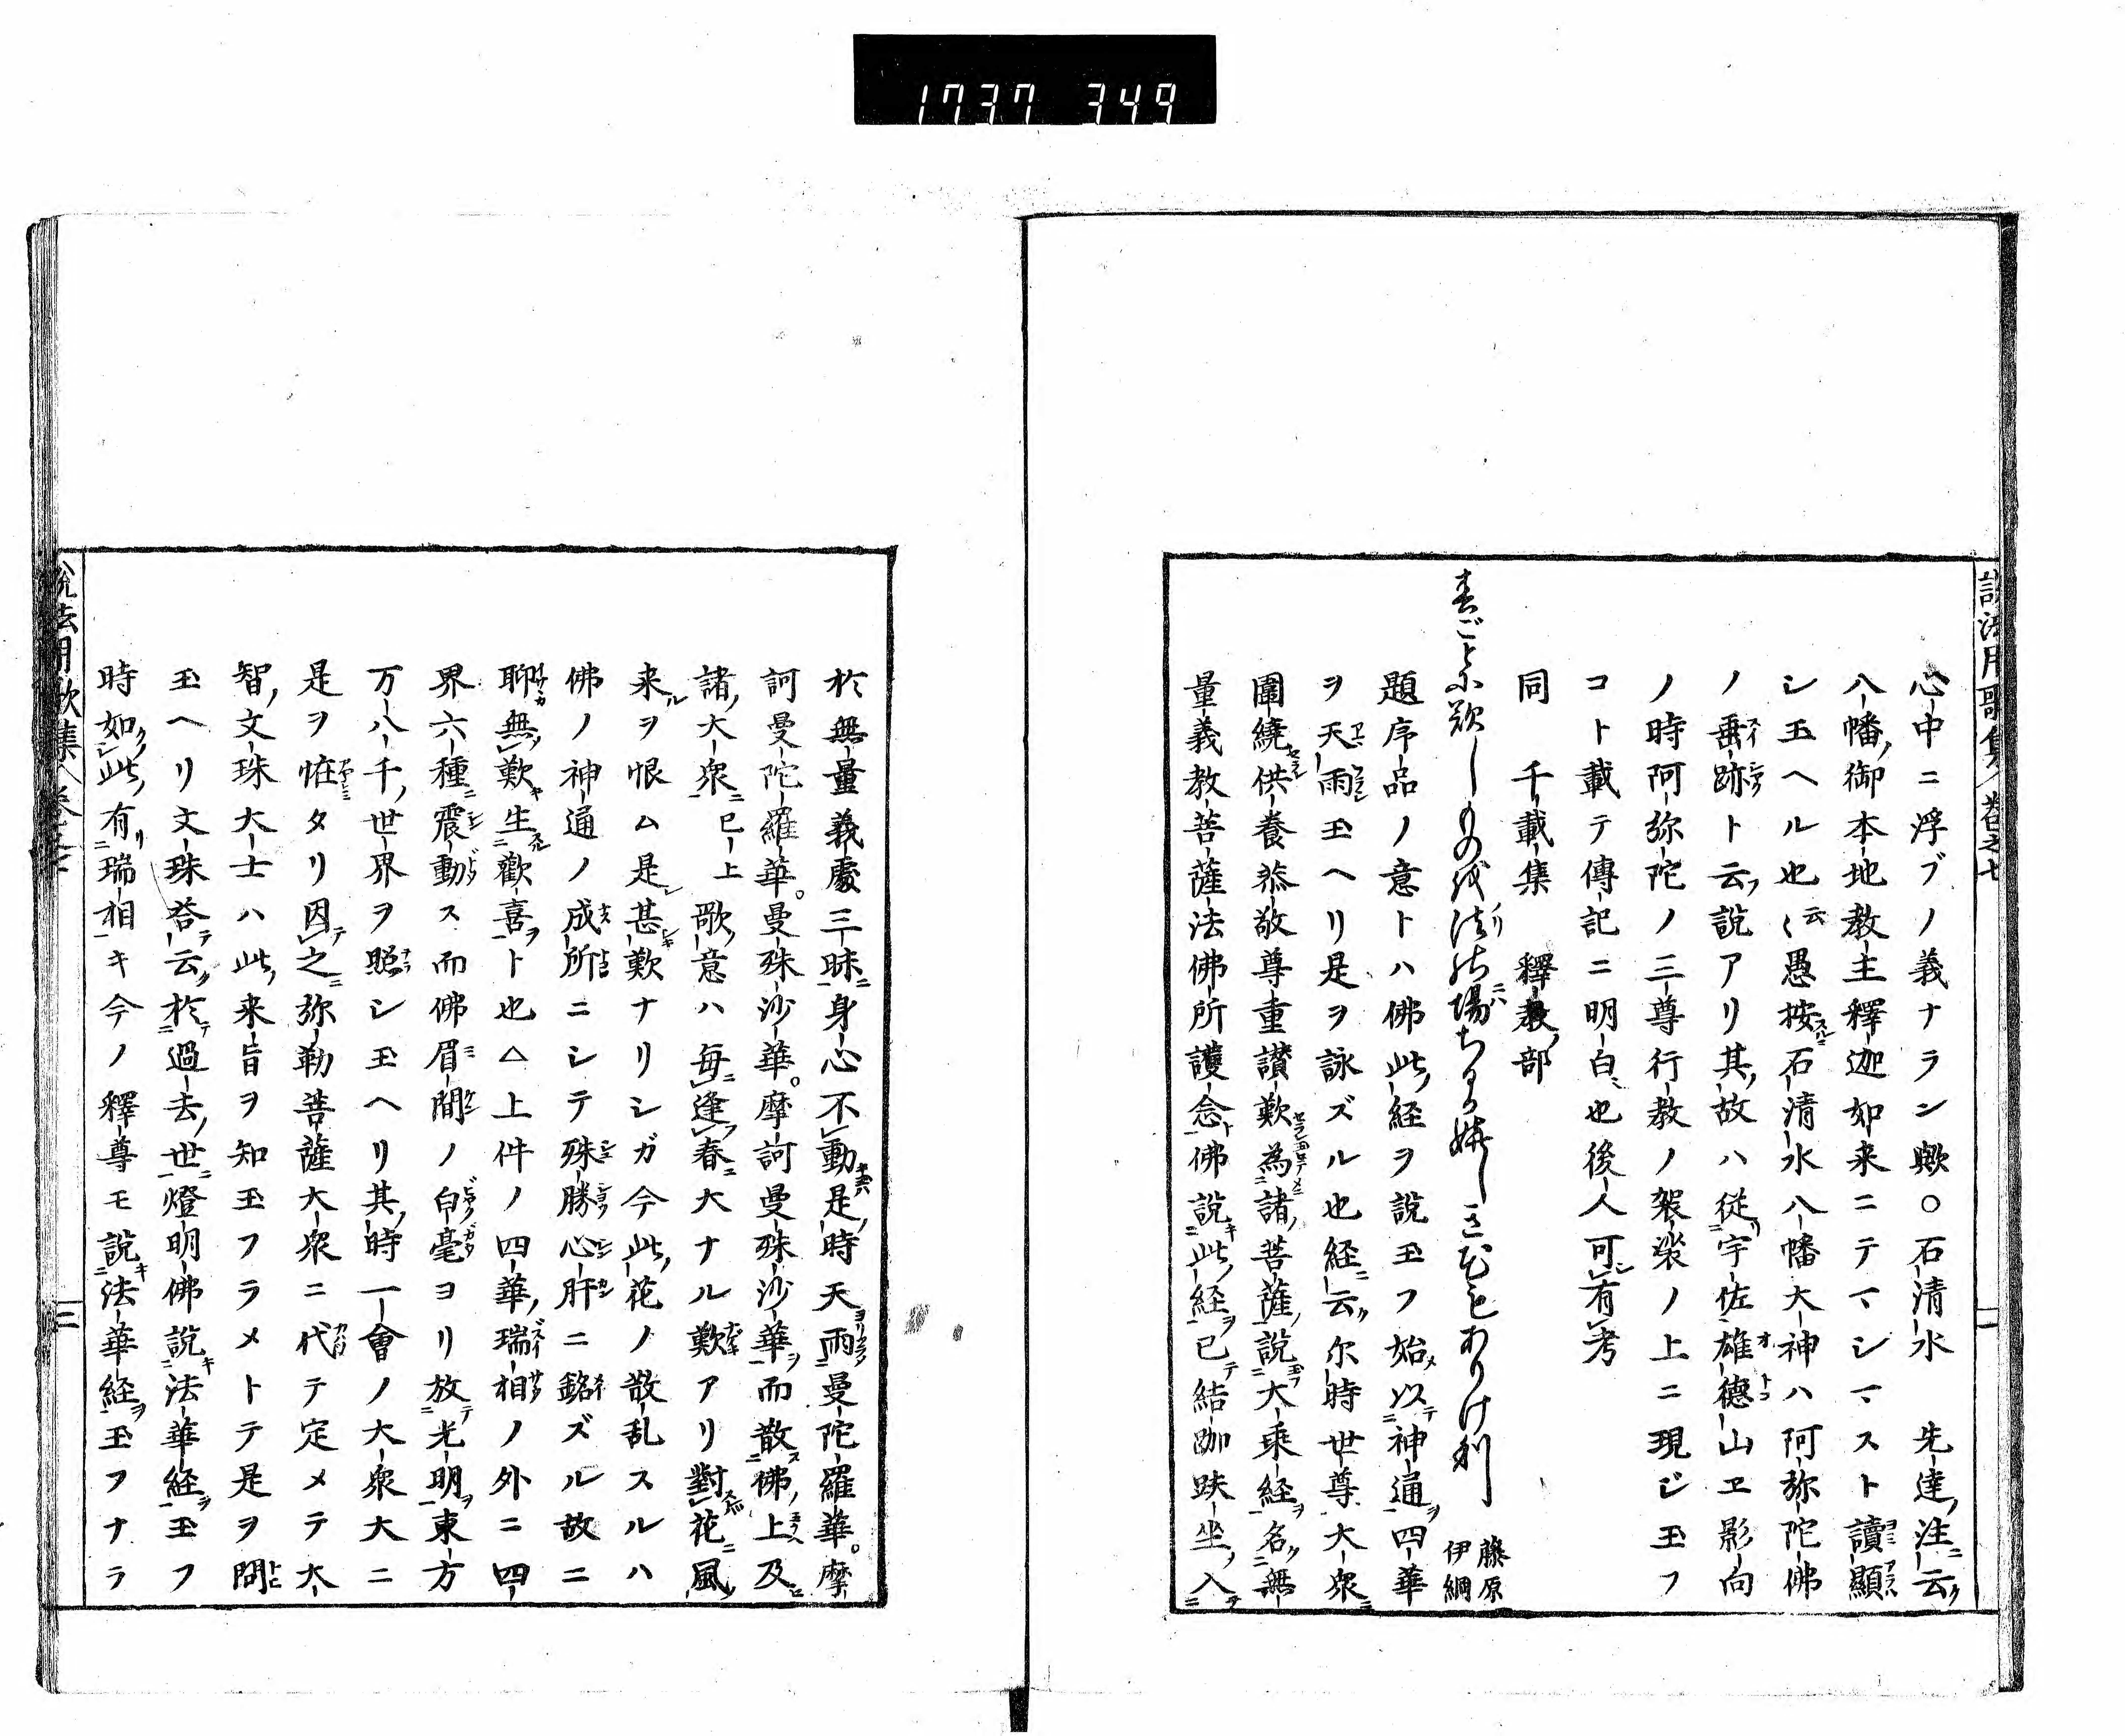 1737 349
説法用歌集 巻之七
心中ニ浮ブノ義ナラン歟○石清水 先達ノ注ニ云ク
八幡ノ御本地教主釋迦如来ニテマシマスト讀顯
シ玉ヘル也云〻愚按スルニ石清水八幡大神ハ阿弥陀佛
ノ垂跡ト云フ説アリ其ノ故ハ從リ宇佐雄徳山ヱ影向
ノ時阿弥陀ノ三尊行教ノ袈裟ノ上ニ現ジ玉フ
コト載テ傳記ニ明白也後人可有考
同 千載集 釋教ノ部
春ごとに歎しものを法の場ちるが嬉しき花もありけり 藤原伊綱
題序品ノ意トハ佛此ノ経ヲ説玉フ始メ以神通ヲ四華
ヲ天雨玉ヘリ是ヲ詠ズル也経ニ云ク尔時世尊大衆
圍繞供養恭敬尊重讃歎為諸ノ菩薩説大乘経ヲ名ク無
量義教菩薩法佛所護念ト佛説此ノ経ヲ已テ結跏趺坐入
於無量義處三昧ニ身心不動是ノ時天雨曼陀羅華。摩
訶曼陀羅華。曼殊沙華。摩訶曼殊沙華ヲ而散佛ノ上及
諸ノ大衆ニ已上 歌ノ意ハ毎逢春ニ大ナル歎アリ對花ニ風ノ
来ルヲ恨ム是レ甚歎ナリシガ今此ノ花ノ散乱スルハ
佛ノ神通ノ成所ニシテ殊勝心肝ニ銘ズル故ニ
聊無歎キ生歡喜ヲト也△上件ノ四華ノ瑞相ノ外ニ四
界六種ニ震動ス而佛眉間ノ白毫ヨリ放テ光明ヲ東方
万八千ノ世界ヲ照シ玉ヘリ其ノ時一會ノ大衆大ニ
是ヲ恠タリ因テ之ニ弥勒菩薩大衆ニ代テ定メテ大
智ノ文殊大士ハ此ノ来旨ヲ知玉フラメトテ是ヲ問
玉ヘリ文殊答テ云ク於テ過去ノ世ニ燈明佛説キ法華経ヲ玉フ
時如此ノ有リ瑞相キ今ノ釋尊モ説キ法華経ヲ玉フナラ
説法用歌集 巻之七 二